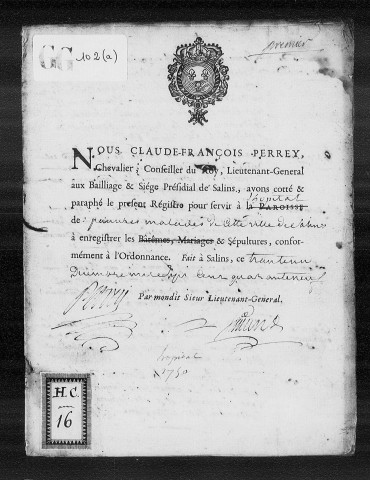 GG 102(a)
premier
NOUS CLAUDE-FRANÇOIS PERREY,
Chevalier, Conseiller du Roy, Lieutenant-General
aux Bailliage & Siége Présidial de Salins, avons cotté &
paraphé le present Régistre pour servir à la PAROISSE l'hopital
de pauvres malades de cette ville de Salins
à enregistrer les Batêmes, Mariages & Sépultures, confor-
mément à l'Ordonnance. Fait à Salins, ce trente un
Decembre mil sept cent quarante neuf
Perrey
Par mondit Sieur Lieutenant-General.
hopital
1750
H.C.
16